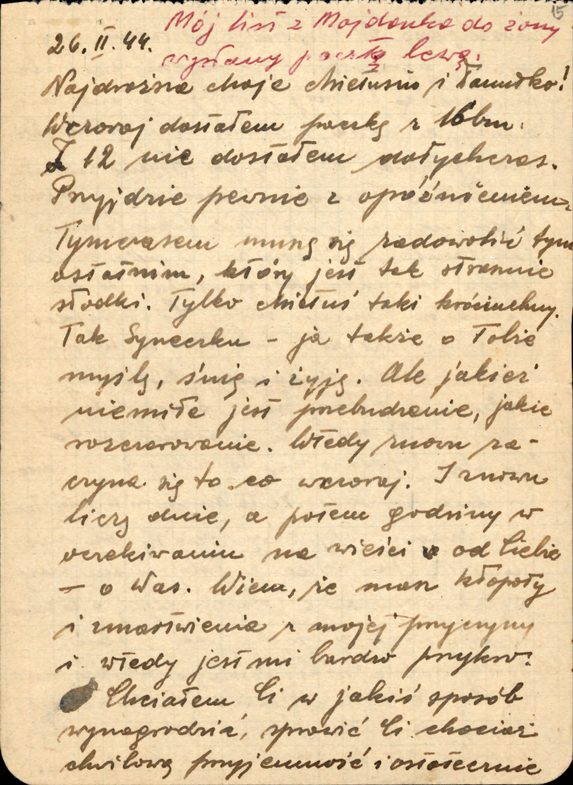 15
Mój list z Majdanka do żony
wysłany pocztą lewą.
26.II.44.
Najdroższe moje Mietusiu i Danuśko!
Wczoraj dostałem paczkę z 16bm.
Z 12 nie dostałem dotychczas.
Przyjdzie pewnie z opóźnieniem.
Tymczasem muszę się zadowolić tym
ostatnim, który jest tak strasznie
słodki. Tylko Mietuś taki króciuchny.
Tak Syneczku – ja także o Tobie
myślę, śnię i żyję. Ale jakież
niemiłe jest przebudzenie, jakie
rozczarowanie. Wtedy znowu za-
czyna się to co wczoraj. I znowu
liczę dnie, a potem godziny w
oczekiwaniu na wieści od Ciebie
– o Was. Wiem, że masz kłopoty
i zmartwienia z mojej przyczyny
i wtedy jest mi bardzo przykro.
Chciałem Ci w jakiś sposób
wynagrodzić, sprawić Ci chociaż
chwilową przyjemność i ostatecznie